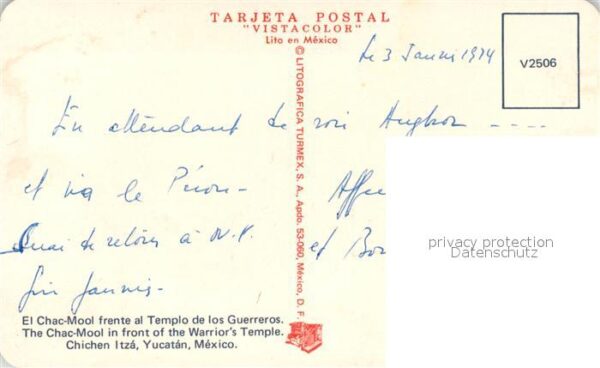 TARJETA POSTAL
"VISTACOLOR"
Lito en México
V2506
© LITOGRAFICA TURMEX, S. A., Apdo. 53-060, México, D. F.
Le 3 Janvier 1974
En attendant de voir Angkor ----
et via le
et
de retour à N.Y.
fin Janvier.
privacy protection
Datenschutz
El Chac-Mool frente al Templo de los Guerreros.
The Chac-Mool in front of the Warrior's Temple.
Chichen Itzá, Yucatán, México.